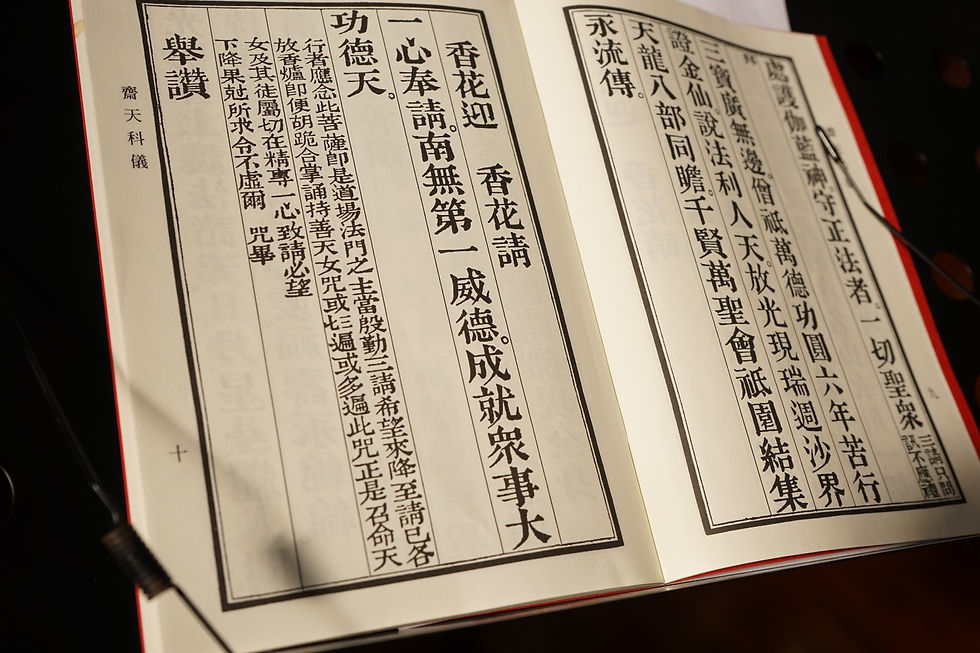 處護伽藍神。守正法者。一切聖衆
三請只問
訊不應禮
拜
三寶廣無邊。僧祇萬德功圓六年苦行
證金仙。說法利人天。放光現瑞週沙界
天龍八部同瞻。千賢萬聖會祇園結集
永流傳。
九
香花迎 香花請
一心奉請。南無第一威德。成就衆事大
功德天。
行者應念此菩薩卽是道場法門之主當殷勤三請希望來降至請已各
放香爐卽便胡跪合掌誦持善天女咒或七遍或多遍此咒正是召命天
女及其徒屬切在精專一心致請必望
下降果尅所求令不虛爾 咒畢
舉讚
齋天科儀
十